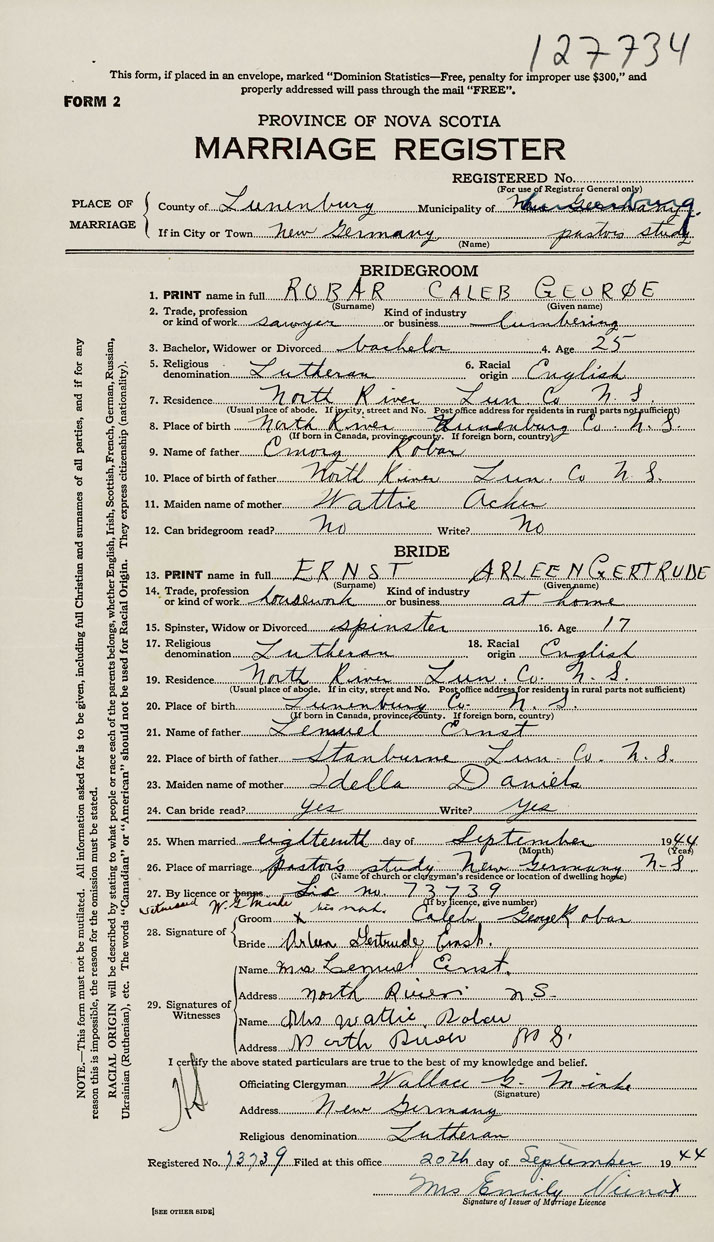 127734
This form, if placed in an envelope, marked "Dominion Statistics—Free, penalty for improper use $300," and
properly addressed will pass through the mail "FREE".
FORM 2
PROVINCE OF NOVA SCOTIA
MARRIAGE REGISTER
REGISTERED No.
(For use of Registrar General only)
PLACE OF MARRIAGE
County of Lunenburg Municipality of
If in City or Town New Germany pastors study
(Name)
BRIDEGROOM
1. PRINT name in full ROBAR CALEB GEORGE
(Surname) (Given name)
2. Trade, profession or kind of work sawyer Kind of industry or business lumbering
3. Bachelor, Widower or Divorced bachelor 4. Age 25
5. Religious denomination Lutheran 6. Racial origin English
7. Residence North River Lun Co N.S.
(Usual place of abode. If in city, street and No. Post office address for residents in rural parts not sufficient)
8. Place of birth North River Lunenburg Co. N.S.
(If born in Canada, province, county. If foreign born, country)
9. Name of father Emory Robar
10. Place of birth of father North River Lun. Co N.S.
11. Maiden name of mother Wattie Acker
12. Can bridegroom read? No Write? No
BRIDE
13. PRINT name in full ERNST ARLEEN GERTRUDE
(Surname) (Given name)
14. Trade, profession or kind of work housework Kind of industry or business at home
15. Spinster, Widow or Divorced spinster 16. Age 17
17. Religious denomination Lutheran 18. Racial origin English
19. Residence North River Lun. Co. N.S.
(Usual place of abode. If in city, street and No. Post office address for residents in rural parts not sufficient)
20. Place of birth Lunenburg Co. N.S.
(If born in Canada, province, county. If foreign born, country)
21. Name of father Lemuel Ernst
22. Place of birth of father Stanburne Lun. Co. N.S.
23. Maiden name of mother Idella Daniels
24. Can bride read? Yes Write? Yes
25. When married eighteenth day of September 1944
(Month) (Year)
26. Place of marriage pastor's study New Germany N.S.
(Name of church or clergyman's residence or location of dwelling house)
27. By licence or banns Lic no. 73739
(If by licence, give number)
witnessed W. G. Minke
28. Signature of
Groom X his mark. Caleb George Robar
Bride Arleen Gertrude Ernst.
29. Signatures of Witnesses
Name Mrs Lemuel Ernst.
Address North River N.S.
Name Mrs Wattie Robar
Address North River N S.
I certify the above stated particulars are true to the best of my knowledge and belief.
Officiating Clergyman Wallace G. Minke
(Signature)
Address New Germany
Religious denomination Lutheran
Registered No. 73739 Filed at this office 20th day of September 1944
Mrs Emily Veinot
Signature of Issuer of Marriage Licence
[SEE OTHER SIDE]
NOTE.—This form must not be mutilated. All information asked for is to be given, including full Christian and surnames of all parties, and if for any
reason this is impossible, the reason for the omission must be stated.
RACIAL ORIGIN will be described by stating to what people or race each of the parents belongs, whether English, Irish, Scottish, French, German, Russian,
Ukrainian (Ruthenian), etc. The words "Canadian" or "American" should not be used for Racial Origin. They express citizenship (nationality).